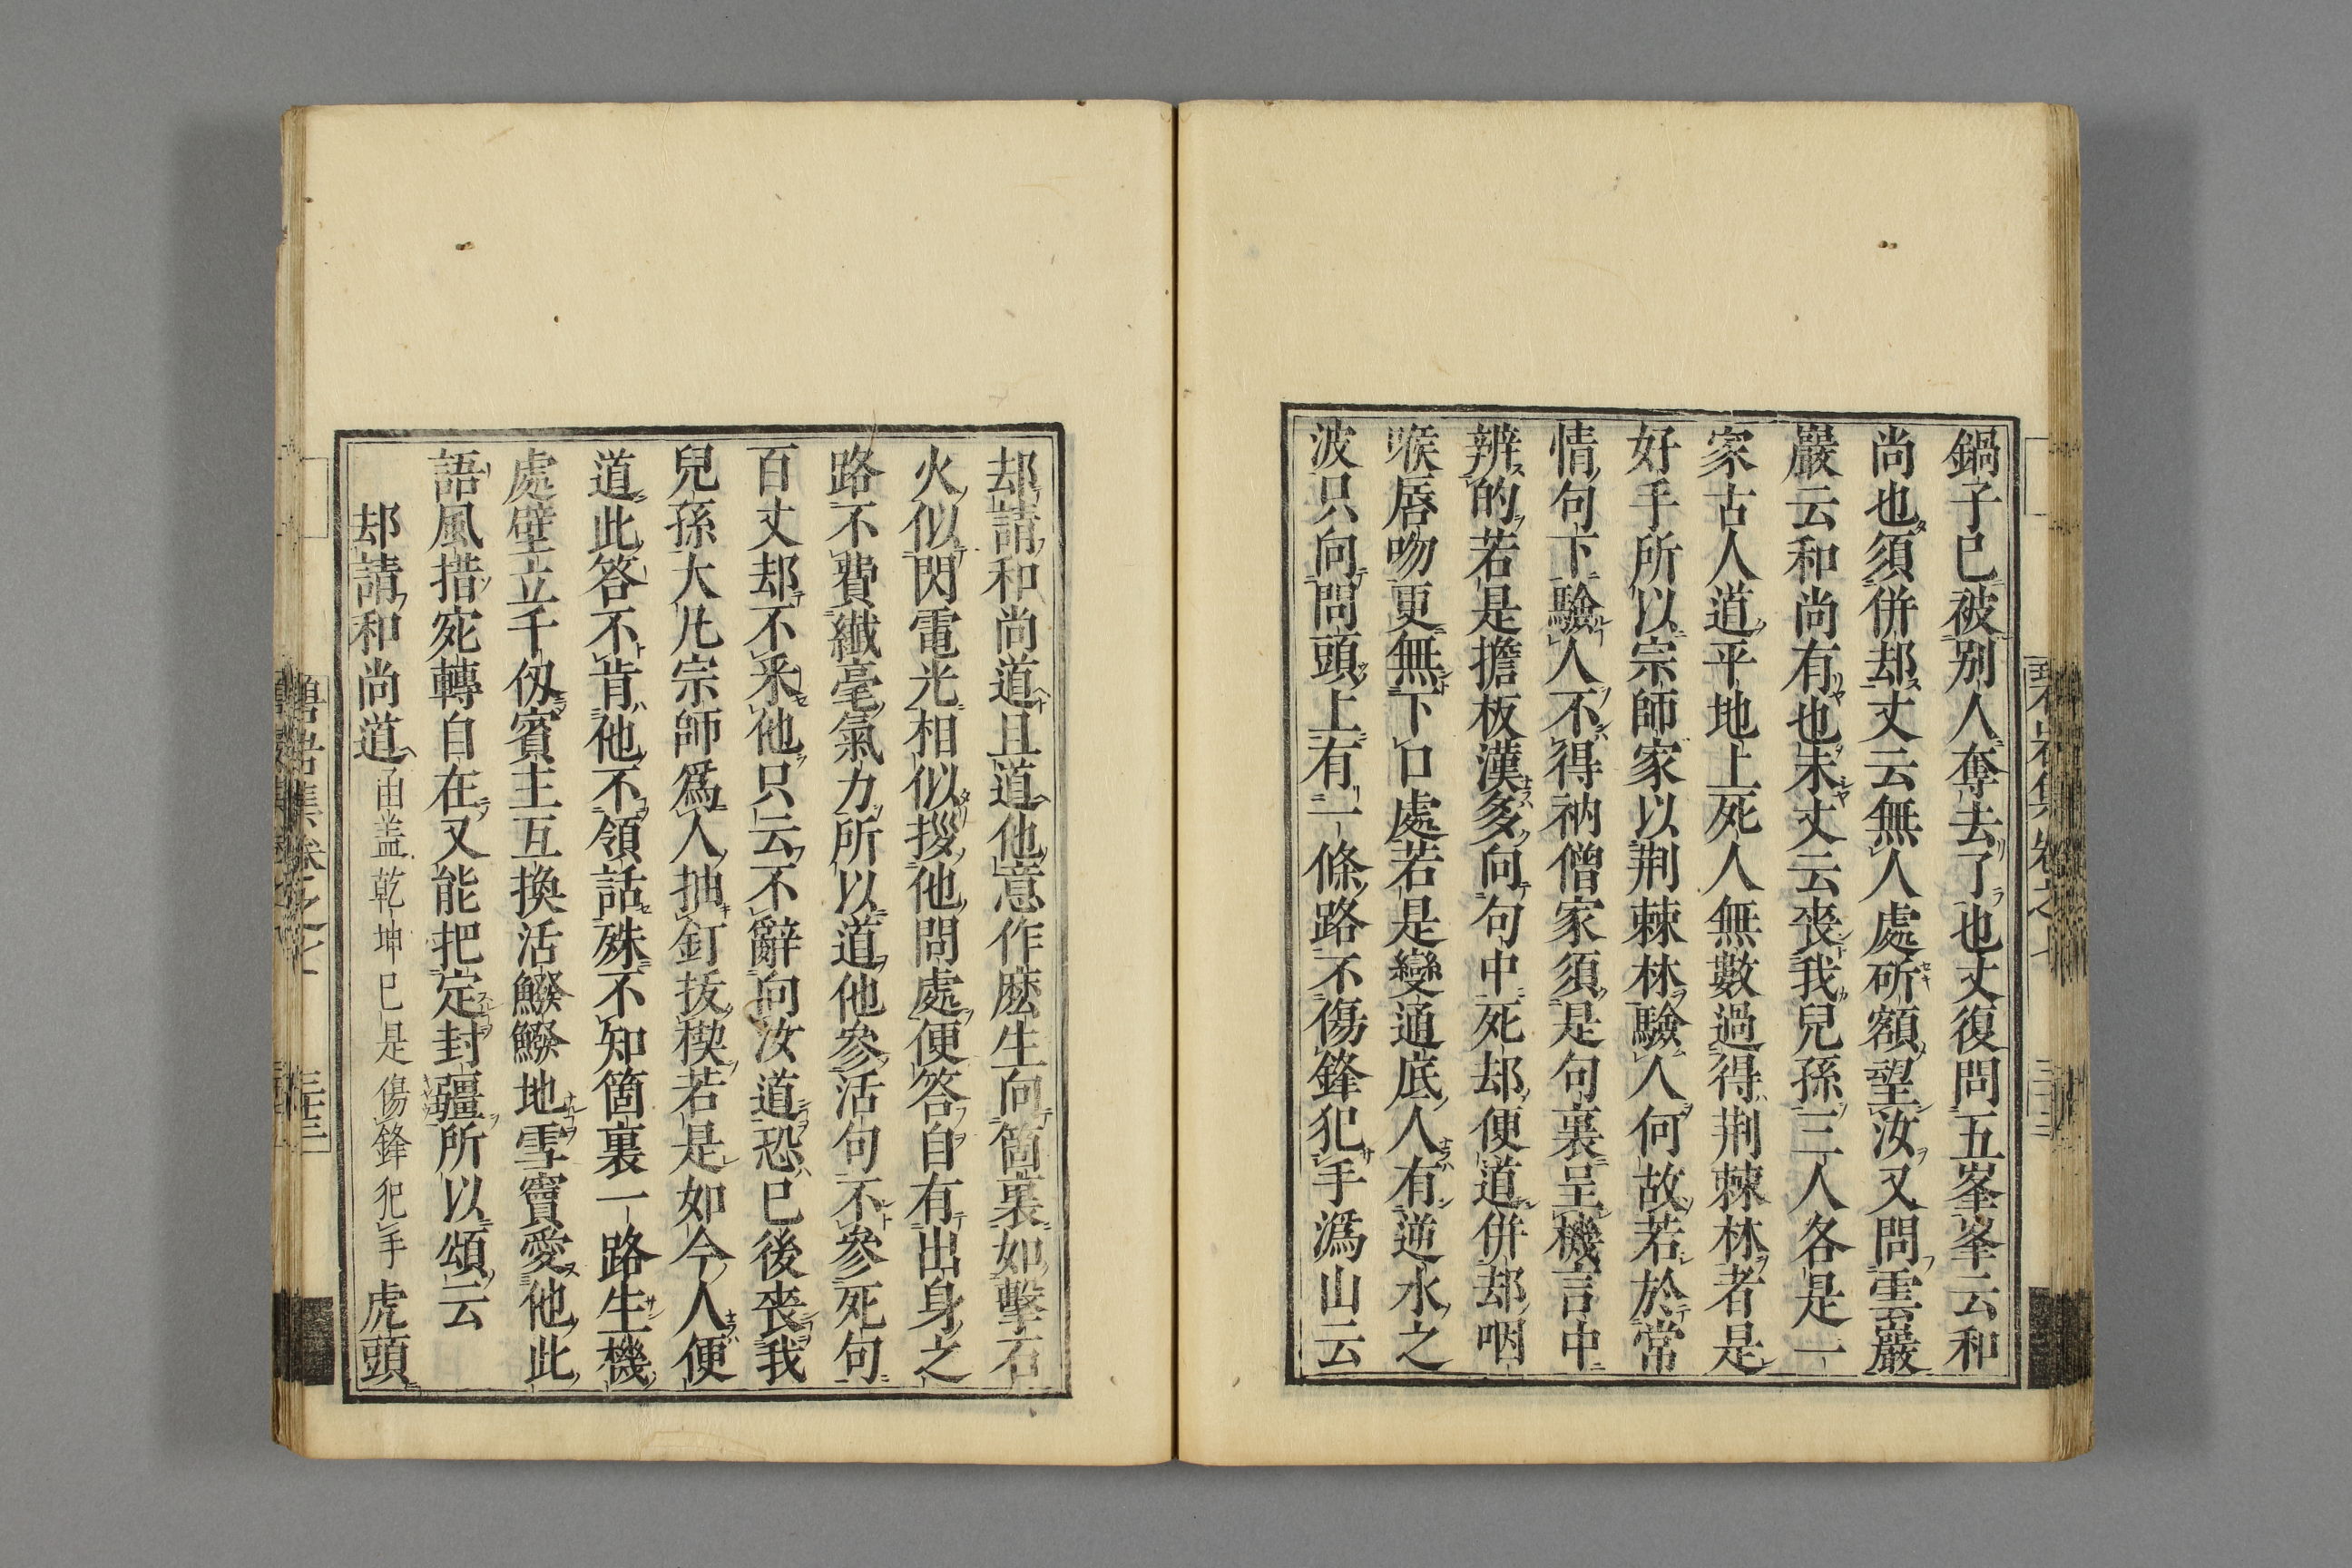 鍋子已被別人奪去了也丈復問五峯峯云和
尚也須併却丈云無人處斫額望汝又問雲巖
巖云和尚有也未丈云喪我兒孫三人各是一
家古人道平地上死人無數過得荆棘林者是
好手所以宗師家以荆棘林驗人何故若於常
情句下驗人不得衲僧家須是句裏呈機言中
辨的若是擔板漢多向句中死却便道併却咽
喉唇吻更無下口處若是變通底人有逆水之
波只向問頭上有一條路不傷鋒犯手潙山云
却請和尚道且道他意作麽生向箇裏如擊石
火似閃電光相似拶他問處便答自有出身之
路不費纖毫氣力所以道他參活句不參死句
百丈却不釆他只云不辭向汝道恐已後喪我
兒孫大凡宗師爲人抽釘拔楔若是如今人便
道此答不肯他不領話殊不知箇裏一路生機
處壁立千仭賓主互換活鱍鱍地雪竇愛他此
語風措宛轉自在又能把定封疆所以頌云
却請和尚道函盖乾坤已是傷鋒犯手虎頭
碧岩集卷之七